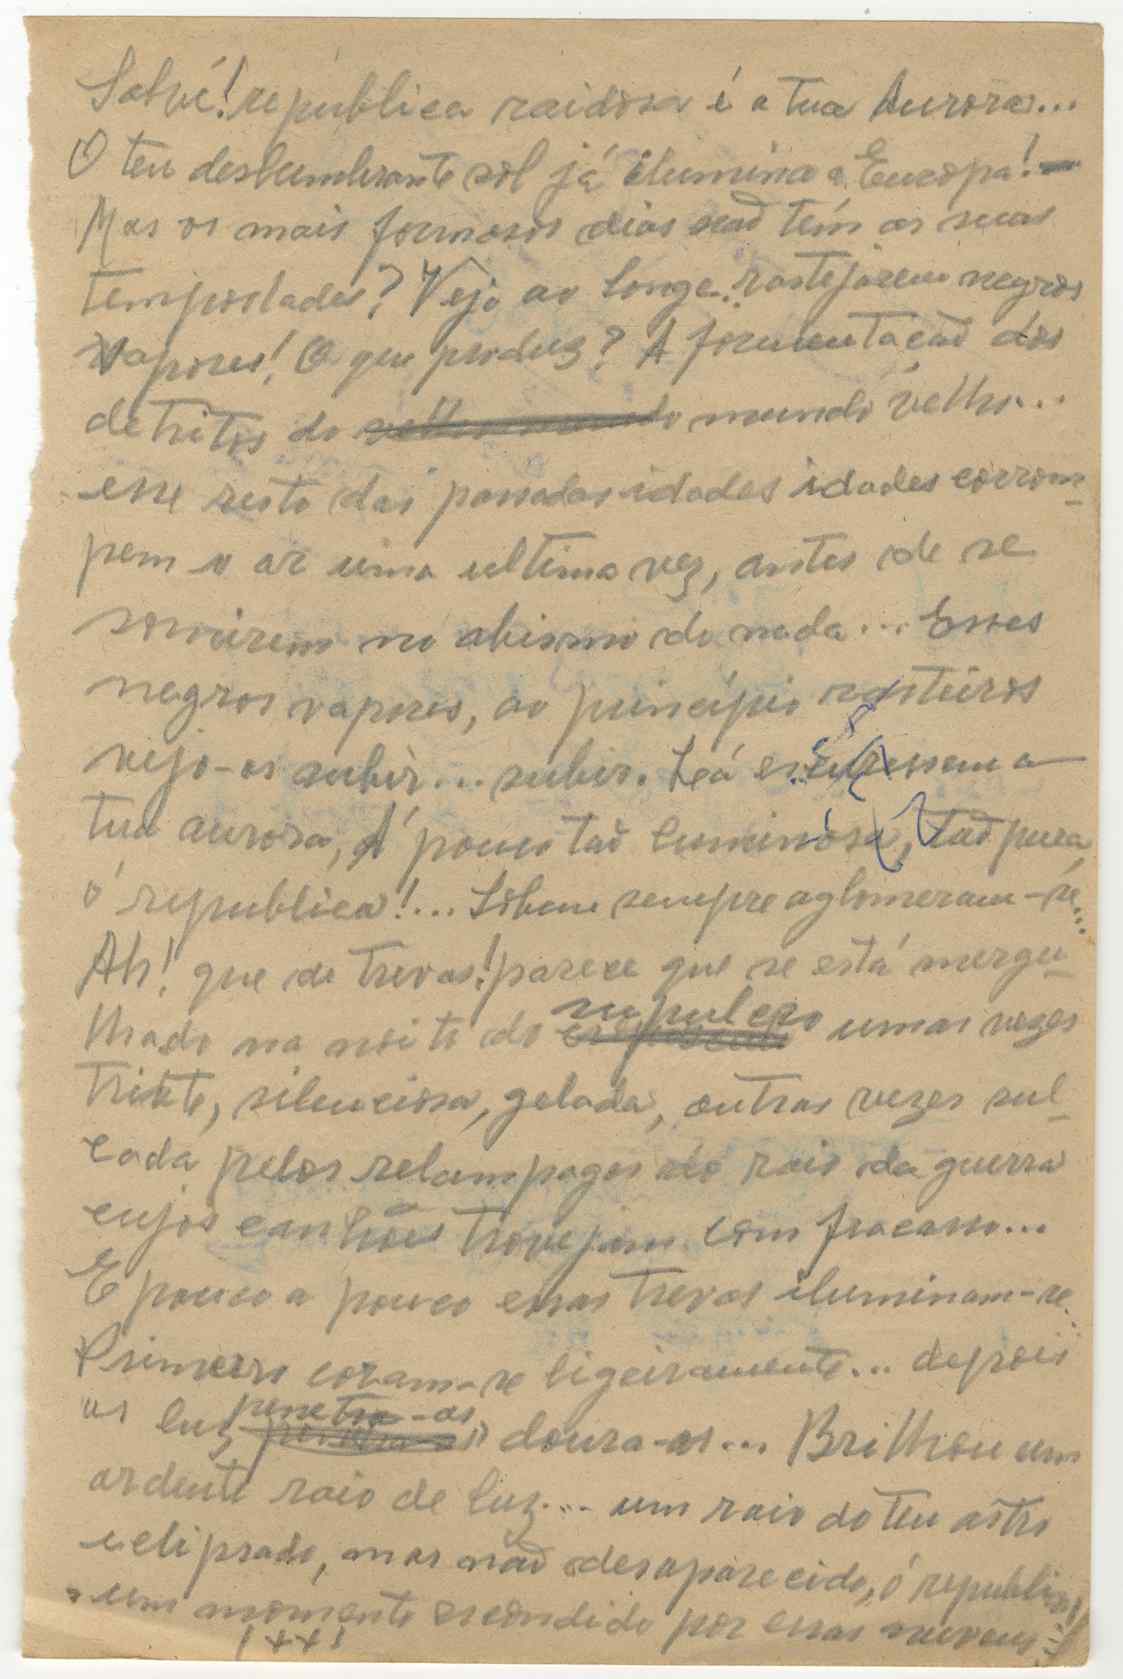 Salvé! república raidosa é a tua Aurora...
O teu deslumbrante sol já ilumina a Europa! -
Mas os mais formosos dias naõ têm as suas
tempestades? Vejo ao longe.. rastejarem negros
vapores! O que produz? A formentaçaõ dos
detritos do mundo velho...
esse resto das passadas idades idades corrom-
pem o ar uma ultima vez, antes de se
sumirem no abismo do nada... Esses
negros vapores, ao princípio rasteiros
vejo-os subir... subir. Lá a
tua aurora, á pouco taõ luminósa, taõ pura,
ó republica!... Sobem sempre aglomeram-se...
Ah! que de trevas! parece que se está mergu-
lhado na noite do sepulcro umas vezes
triste, silenciosa, gelada, outras vezes sul-
cada pelos relampagos do raio da guerra
cujos canhões trovejam com fracasso...
E pouco a pouco essas trevas iluminam-se..
Primeiro coram-se ligeiramente... depois
"as luz penetra-as" doura-as... Brilhou um
ardente raio de luz... um raio do teu astro
eclipsado, mas naõ desaparecido, ó republica,
um momento escondido por essas nuvens...!
! + + !